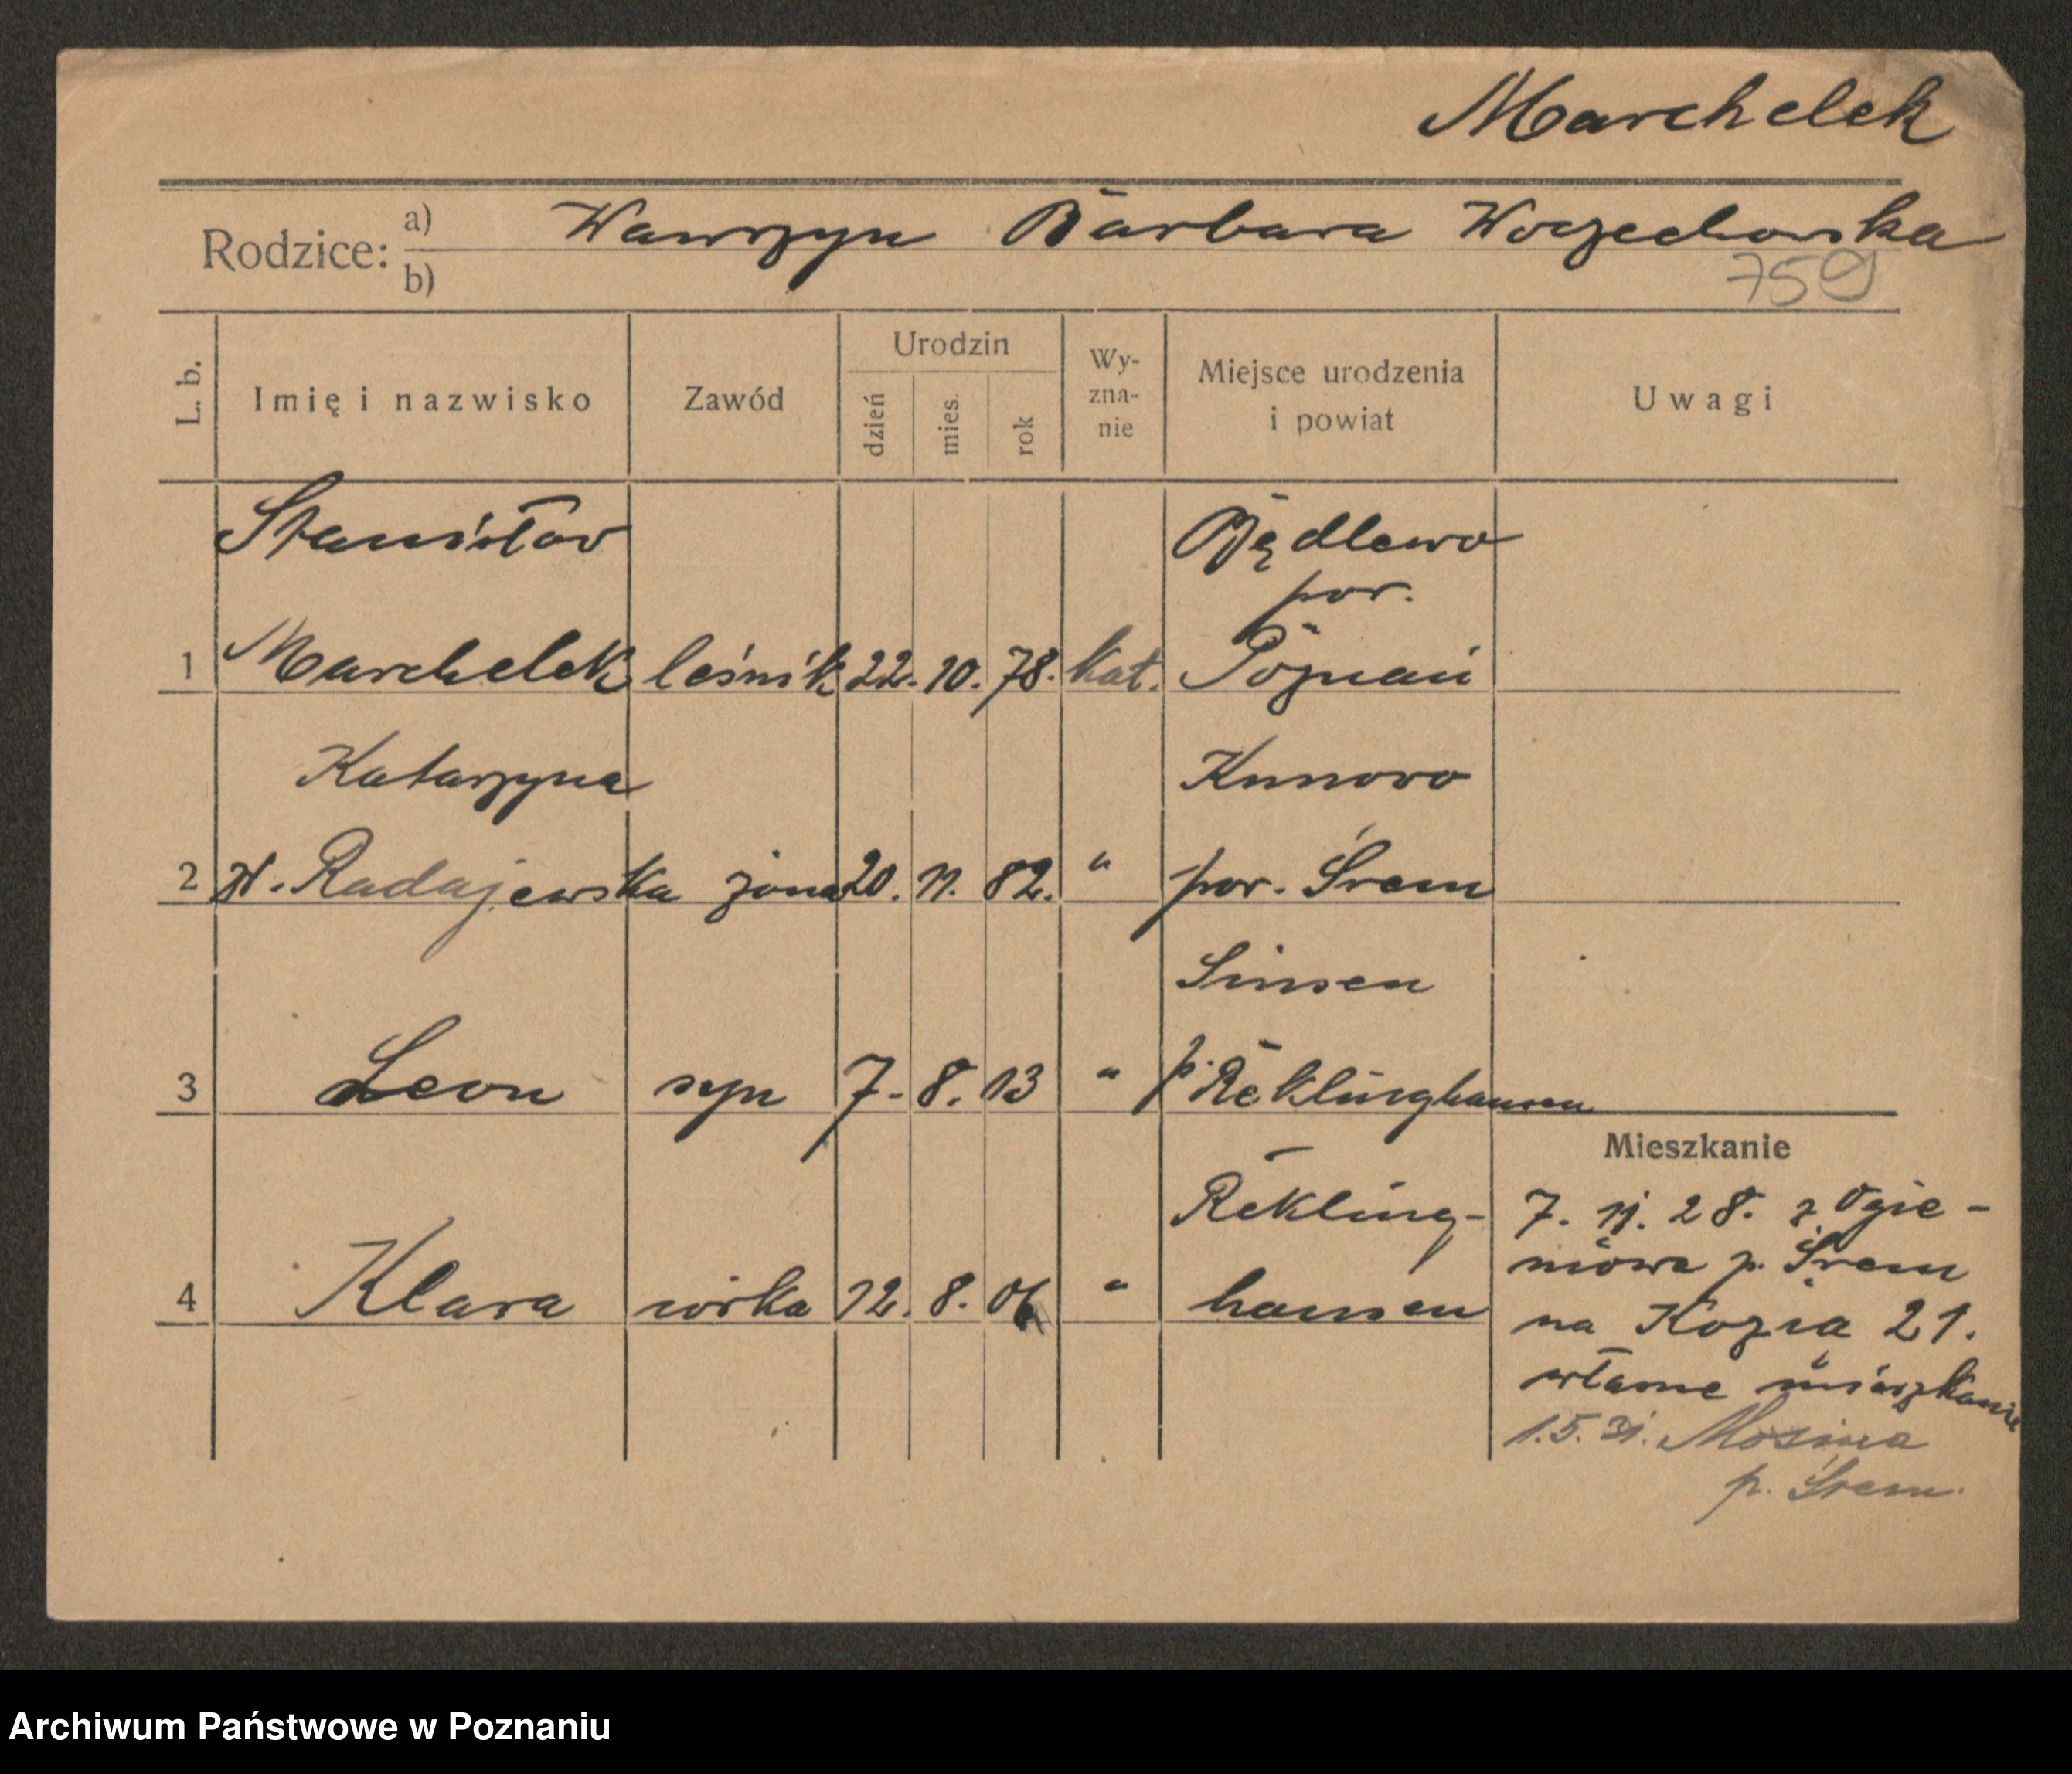 Marchelek
Rodzice: a) Wawrzyn Barbara Wojciechowska
b)
759
L. b. Imię i nazwisko Zawód Urodzin dzień mies. rok Wy-zna-nie Miejsce urodzenia i powiat Uwagi
Stanisław Będlewo
pow.
1 Marchelek leśnik 22. 10. 78. kat. Poznań
Katarzyna Kunowo
2 z Radajewska żona 20. 11. 82. " pow. Śrem
Sinsen
3 Leon syn 7. 8. 13 " p. Reklinghausen
Mieszkanie
Rekling- 7. 11. 28. z Ogie-
niowa p. Śrem
4 Klara córka 12. 8. 06 " hausen na Kozia 21.
własne mieszkanie
1. 5. 31. Mosina
p. Śrem.
Archiwum Państwowe w Poznaniu